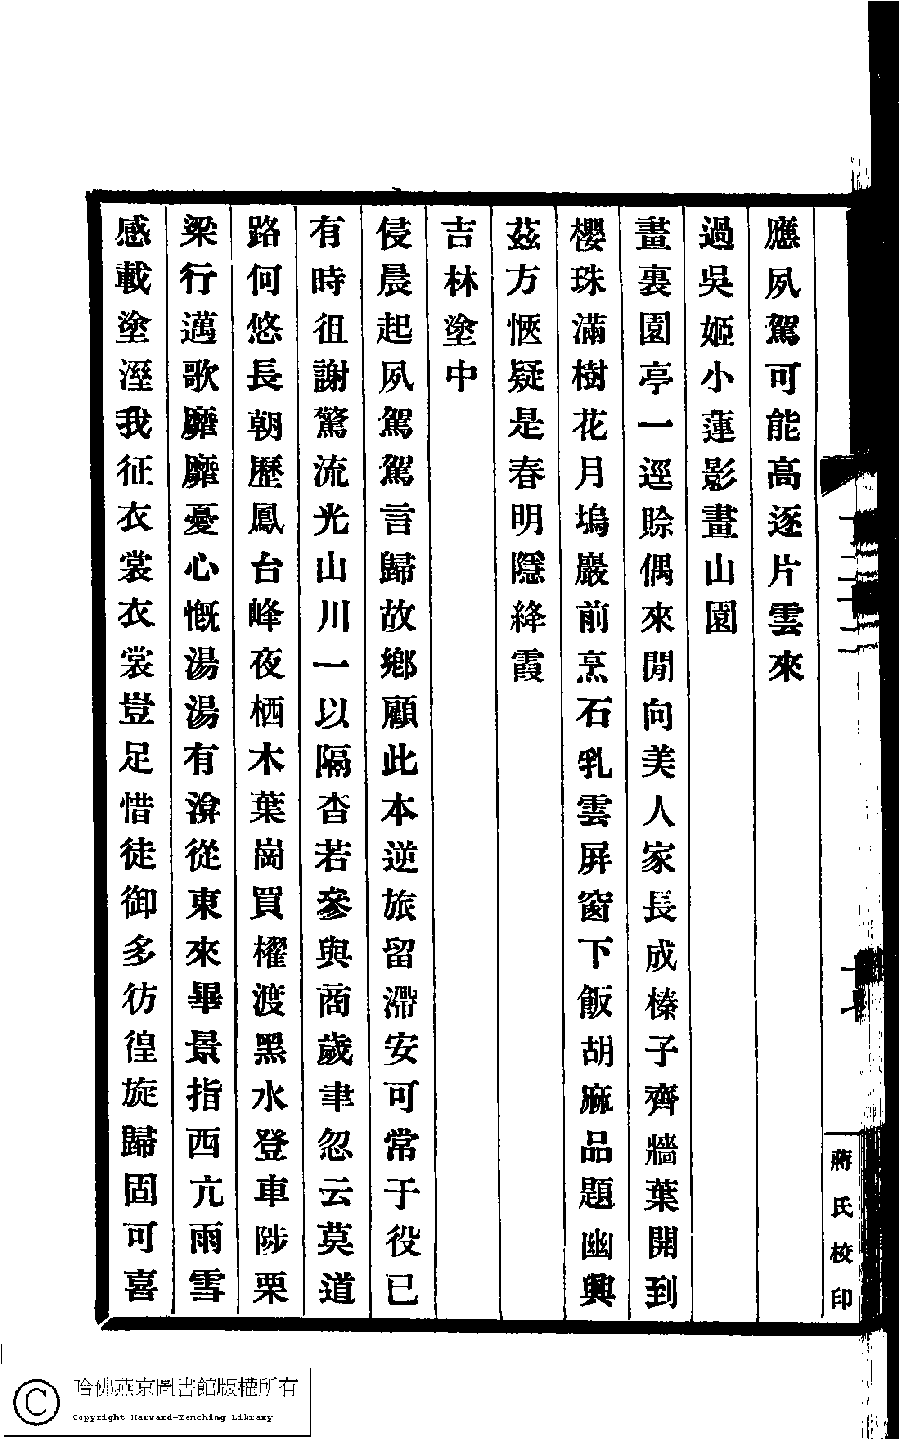 應夙駕可能高逐片雲來
過吳姬小蓮影畫山園
畫裏園亭一逕賒偶來閒向美人家長成榛子齊牆葉開到
櫻珠滿樹花月塢巖前烹石乳雲屏窗下飯胡麻品題幽興
茲方愜疑是春明隱絳霞
吉林塗中
侵晨起夙駕駕言歸故鄉顧此本逆旅留滯安可常于役已
有時徂謝驚流光山川一以隔杳若參與商歲聿忽云莫道
路何悠長朝歷鳳台峰夜栖木葉崗買櫂渡黑水登車陟栗
梁行邁歌靡靡憂心慨湯湯有渰從東來畢景指西亢雨雪
感載塗溼我征衣裳衣裳豈足惜徒御多彷徨旋歸固可喜
蔣氏校印
哈佛燕京圖書館版權所有
Copyright Harvard-Yenching Library